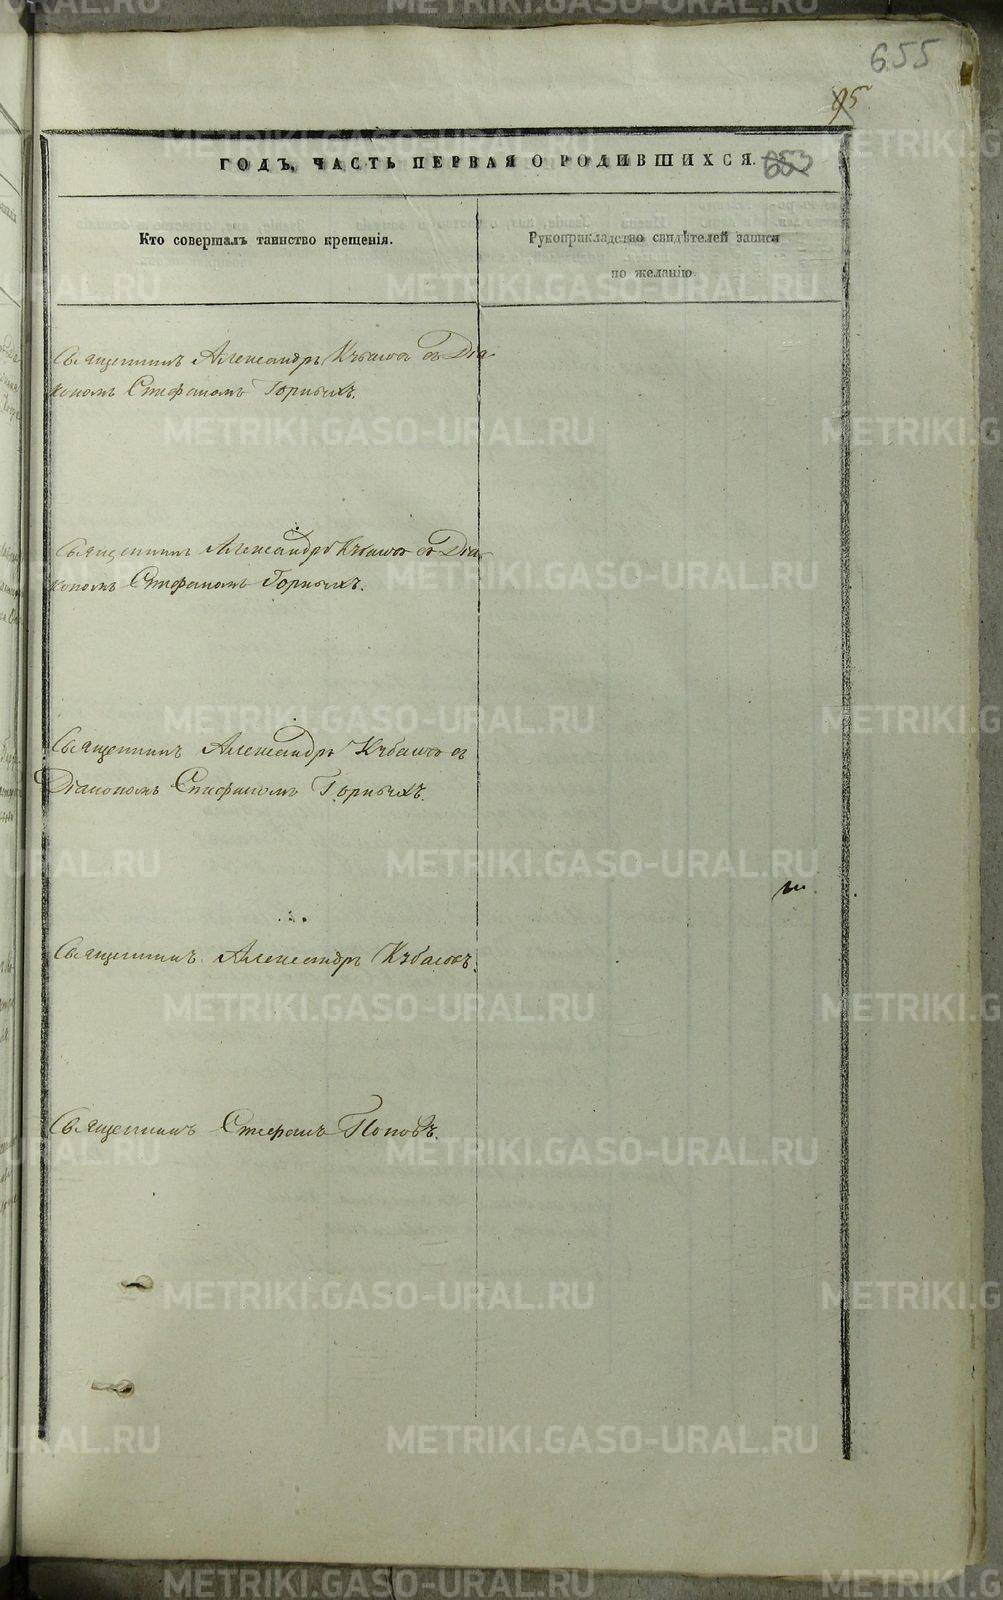 655
95
ГОДЪ, ЧАСТЬ ПЕРВАЯ О РОДИВШИХСЯ.
653
Кто совершалъ таинство крещенія.
Рукоприкладство свидѣтелей записи
по желанію
Священникъ Александръ съ Діа-
кономъ Стефаномъ Горныхъ.
Священникъ Александръ съ Діа-
кономъ Стефаномъ Горныхъ.
Священникъ Александръ съ
Діакономъ Стефаномъ Горныхъ.
Священникъ Александръ
Священникъ Стефанъ Поповъ.
METRIKI.GASO-URAL.RU